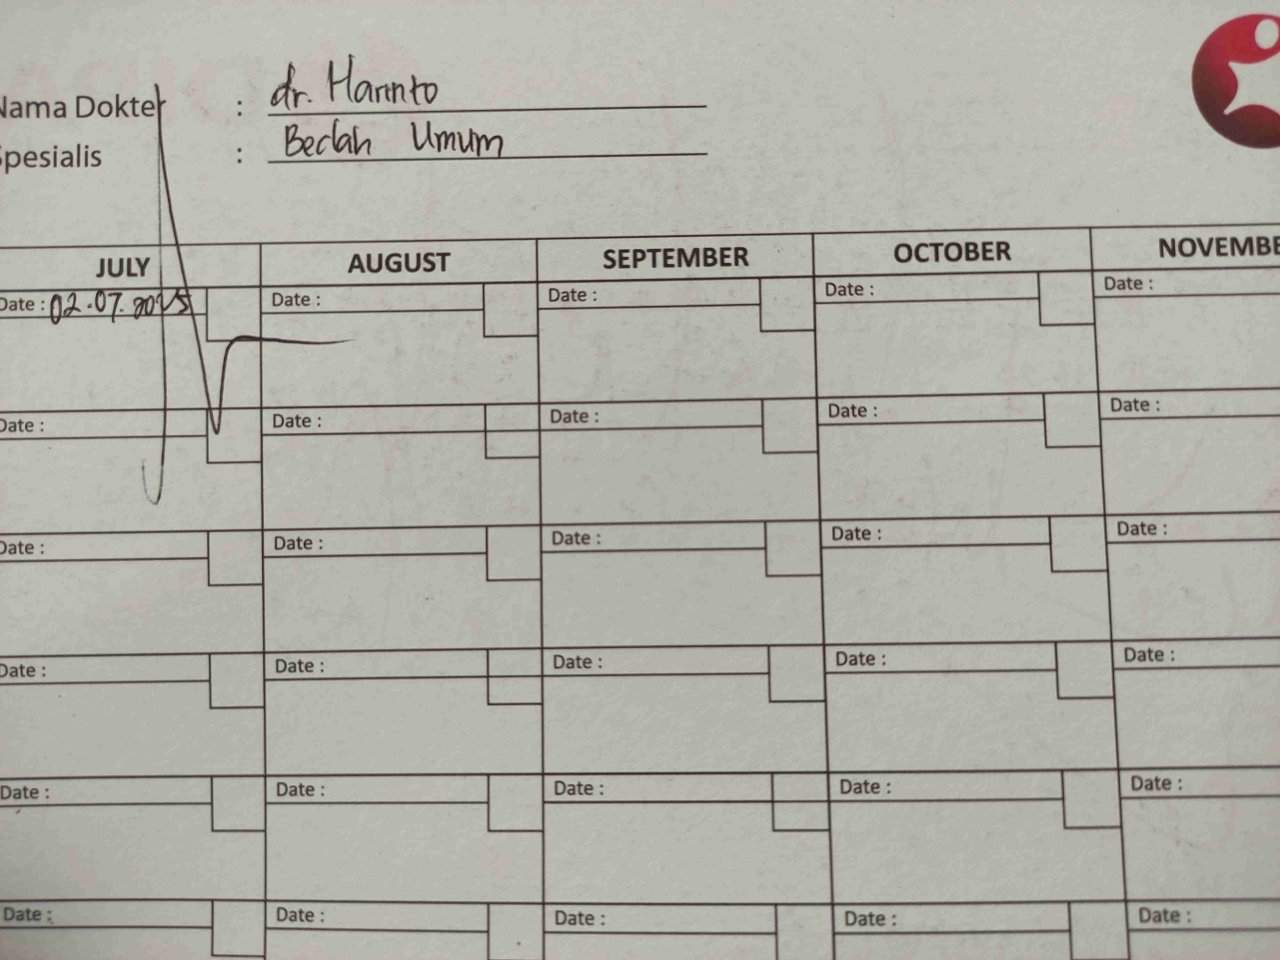 Nama Dokter : dr. Harinto
Spesialis : Bedah Umum
JULY AUGUST SEPTEMBER OCTOBER NOVEMBE
Date : 02.07.2025 Date : Date : Date : Date :
Date : Date : Date : Date : Date :
Date : Date : Date : Date : Date :
Date : Date : Date : Date : Date :
Date : Date : Date : Date : Date :
Date : Date : Date : Date : Date :